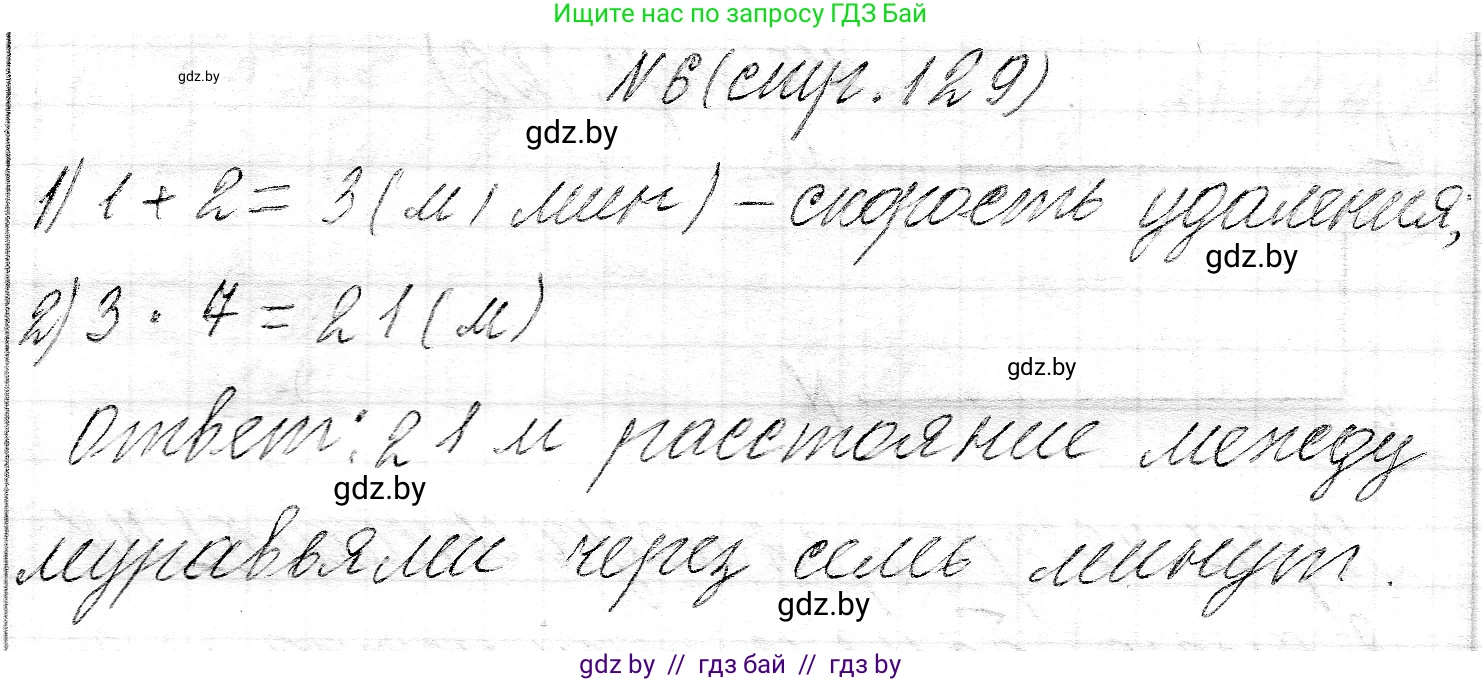 Ищите нас по запросу ГДЗ Бай
gdz.by
№6 (стр. 129)
gdz.by
1) 1 + 2 = 3 (м/мин) – скорость удаления;
gdz.by
2) 3 · 7 = 21 (м)
gdz.by
Ответ: 21 м расстояние между
gdz.by
муравьями через семь минут.
gdz.by
gdz by // гдз бай // гдз by